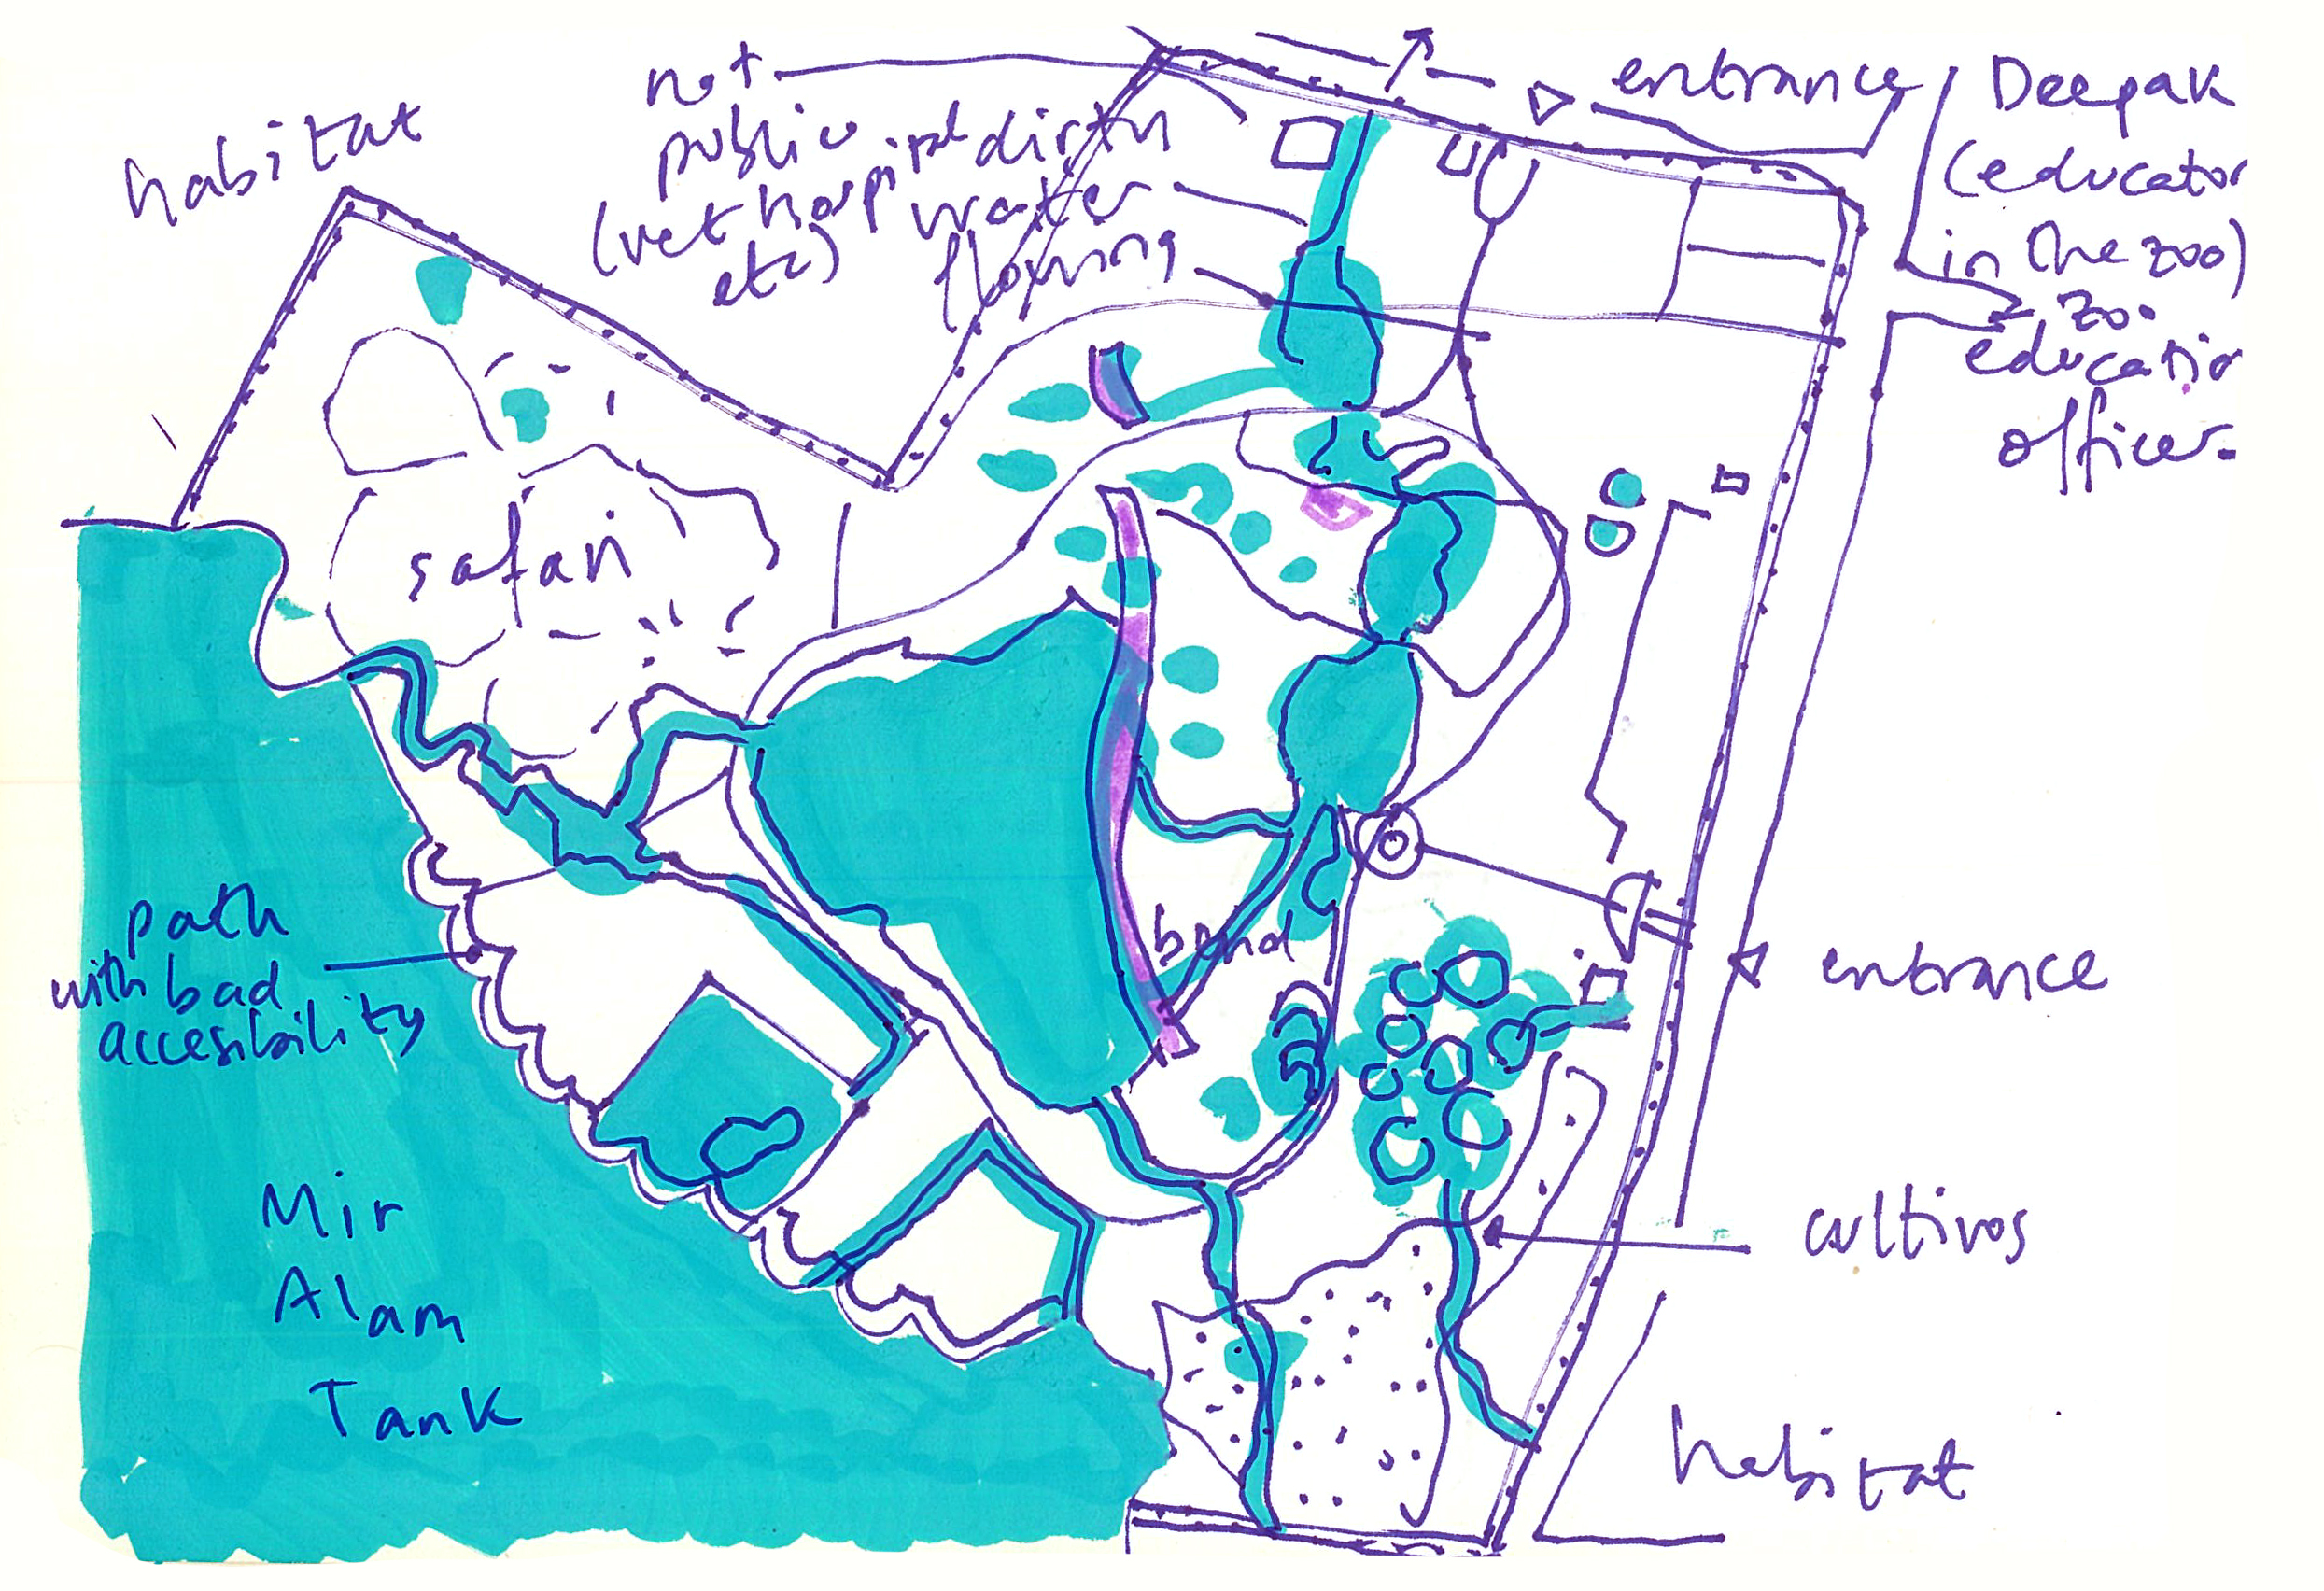 habitat
not
public
(vet hospital
etc)
dirty
water
flowing
entrance
Deepak
(educator
in the zoo)
zoo
education
officer.
safari
path
with bad
accesibility
bund
entrance
Mir
Alam
Tank
cultivos
habitat